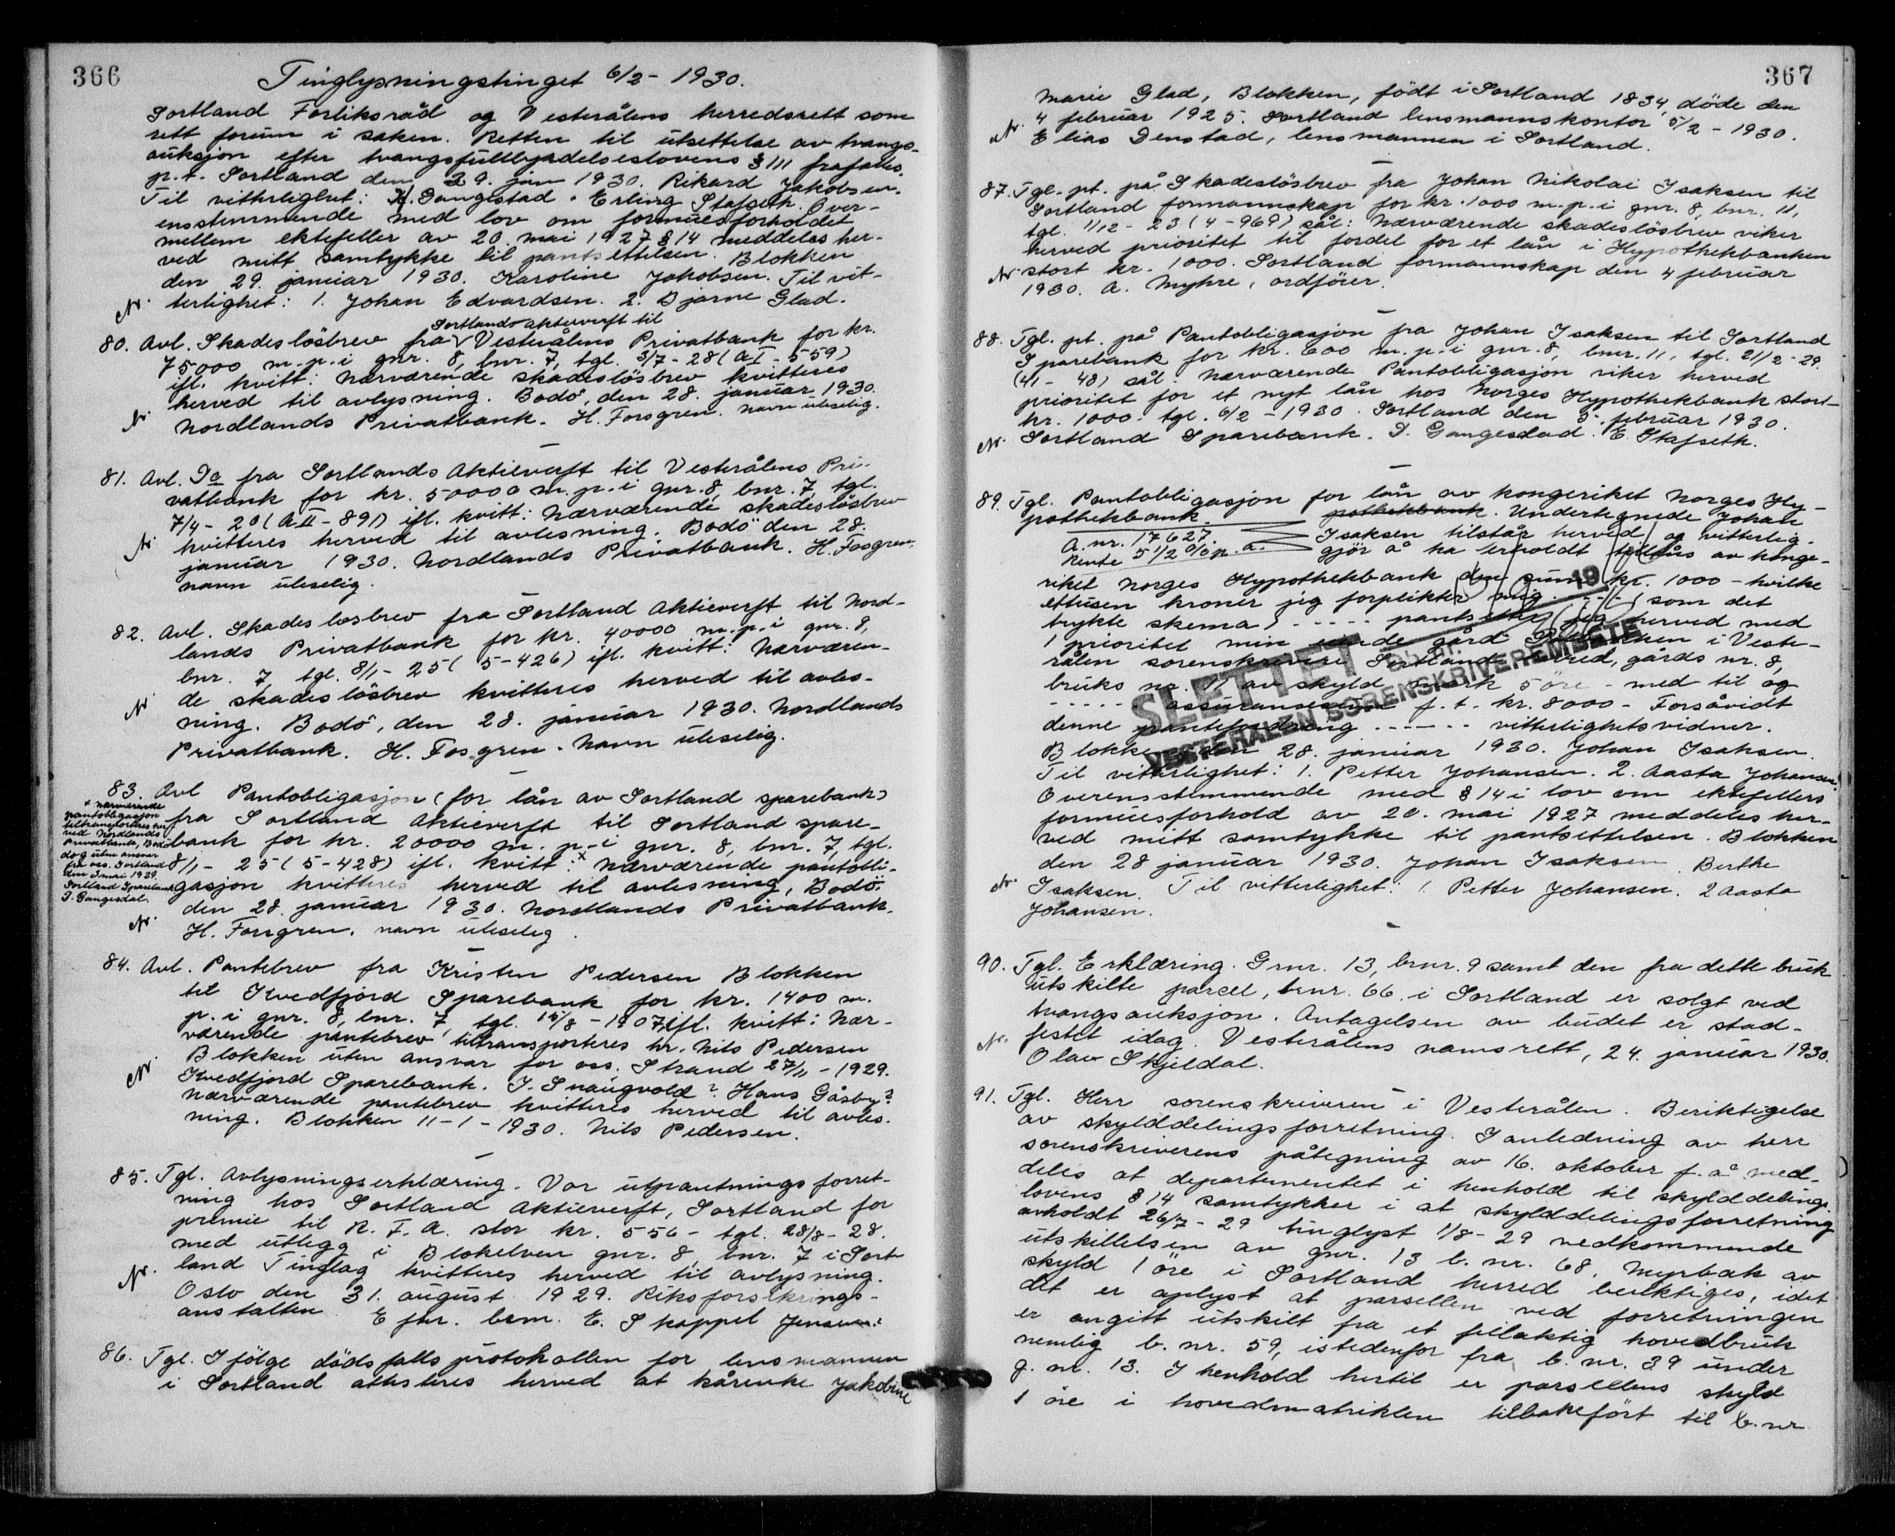 366
Tinglysningstinget 6/2 - 1930.
Sortland Forliksråd og Vesterålens herredsrett som
rett forum i saken. Retten til utsettelse av tvangs-
auksjon efter tvangsfullbyrdelseslovens § 111 frafaldes.
p.t. Sortland den 29. jan 1930. Rikard Jakobsen.
Til vitterlighet: Erling Stafseth. Over-
ensstemmende med lov om formuesforholdet
mellem ektefeller av 20 mai 1927 § 14 meddeles her-
ved mitt samtykke til pantsettelsen. Blokken
den 29. januar 1930. Karoline Jakobsen. Til vit-
N. terlighet: 1. Johan Edvardsen. 2. Bjarne Glad.
Sortlands aktieverft til
80. Avl. Skadeslösbrev fra Vesterålens Privatbank for kr.
75000 m.p.i gnr. 8, bnr. 7, tgl. 3/7 - 28 (A I - 559)
ifl. kvitt: Nærværende skadeslösbrev kvitteres
herved til avlysning. Bodö, den 28. januar 1930.
N. Nordlands Privatbank. H. Forsgren. navn uleselig.
81. Avl. Do fra Sortlands Aktieverft til Vesterålens Pri-
vatbank for kr. 50000 m.p.i gnr. 8, bnr. 7, tgl.
7/4 - 20 (A II - 891) ifl. kvitt: Nærværende skadeslösbrev
N. kvitteres herved til avlesning. Bodö den 28.
januar 1930. Nordlands Privatbank. H. Fosgren.
navn uleselig.
82. Avl. Skadeslösbrev fra Sortland Aktieverft til Nord-
lands Privatbank for kr. 40000 m.p.i gnr. 8,
bnr. 7, tgl. 8/1 - 25 (5-426) ifl. kvitt: Nærværen-
N. de skadeslösbrev kvitteres herved til avles-
ning. Bodö, den 28. januar 1930. Nordlands
Privatbank. H. Fosgren. Navn uleselig.
83. Avl Pantobligasjon (for lån av Sortland sparebank)
fra Sortland Aktieverft til Sortland spare-
bank for kr. 20000 m.p.i gnr. 8, bnr. 7, tgl.
8/1 - 25 (5-428) ifl. kvitt: x Nærværende pantobli-
gasjon kvitteres herved til avlesning, Bodö
den 28. januar 1930. Nordlands Privatbank.
N. H. Forsgren. navn uleselig.
x Nærværende
pantobligasjon
tiltransporteres her-
ved Nordlands
Privatbank, Bodö
dog uten ansvar
for oss. Sortland
den 3 mai 1929.
Sortland Sparebank
D. Gangesdal.
84. Avl. Pantebrev fra Kristen Pedersen Blokken
til Kvedfjord Sparebank for kr. 1400 m.
p.i gnr. 8, bnr. 7, tgl. 15/8 - 1907, ifl. kvitt: Nær-
værende pantebrev tiltransporteres hr. Nils Pedersen
Blokken uten ansvar for oss. Strand 27/11 - 1929.
N. Kvedfjord Sparebank. J. Snaugvold? Hans Gåsby?
Nærværende pantebrev kvitteres herved til avles-
ning. Blokken 11-1-1930. Nils Pedersen.
85. Tgl. Avlysningserklæring. Vor utpantningsforret-
ning hos Sortland Aktieverft, Sortland for
premie til R.F.A. stor kr. 556 - tgl. 28/8 - 28.
med utlegg i Blokelven gnr. 8, bnr. 7 i Sort
N. land Tinglag kvitteres herved til avlysning.
Oslo den 31. august 1929. Riksforsikrings-
anstalten E ftr. bem. E. Skappel Jensen.
86. Tgl. Ifölge dödsfallsprotokollen for lensmannen
i Sortland attesteres herved at kårenke Jakobine
367
Marie Glad, Blokken, födt i Sortland 1834 döde den
4 februar 1925. Sortland lensmannskontor 5/2 - 1930.
N. Elias Denstad, lensmannen i Sortland.
87. Tgl. pt. på Skadeslösbrev fra Johan Nikolai Isaksen til
Sortland formannskap for kr. 1000 m.p.i gnr. 8, bnr. 11,
tgl. 1/12 - 23 (4-969) sål: Nærværende skadeslösbrev viker
herved prioritet til fordel for et lån i Hypothekbanken
N. stort kr. 1000. Sortland formannskap den 4 februar
1930. A. Myhre, ordförer.
88. Tgl. pt. på Pantobligasjon fra Johan Isaksen til Sortland
Sparebank for kr. 600 m.p.i gnr. 8, bnr. 11, tgl. 21/2 - 29.
(41-48) sål: Nærværende Pantobligasjon viker herved
prioritet for et nytt lån hos Norges Hypothekbank stort
kr. 1000 tgl. 6/2 - 1930. Sortland den 5. februar 1930.
N. Sortland Sparebank. D. Gangesdad. E Stafseth.
89. Tgl. Pantobligasjon for lån av kongeriket Norges Hy-
pothekbank. pothekbank. Undertegnede Johan
A. nr. 17627. Isaksen tilstår herved og vitterlig-
Rente 5 1/2 % p.a. gjör å ha erholdt tillåns av konge-
riket Norges Hypothekbank den sum kr. 1000 - hvilke
ettusen kroner jeg forplikter mig - - - (som det
trykte skema) - - - - - pantsetter jeg herved med
1 prioritet min eiende gård i Veste-
rålen sorenskriveri Sortland herred, gårds nr. 8,
bruks nr. 11 av skyld mark 5 öre - med til og
- - - - - assuransesum f.t. kr. 8000 - Forsåvidt
denne pantefordring - - - - - vitterlighetsvidner.
Blokken den 28. januar 1930. Johan Isaksen.
SLETTET
19
VESTERÅLEN SORENSKRIVEREMBETE
Til vitterlighet: 1. Petter Johansen. 2. Aasta Johansen
Overensstemmende med § 14 i lov om ektefellers
formuesforhold av 20. mai 1927 meddeles her-
ved mitt samtykke til pantsettelsen. Blokken
den 28 januar 1930. Johan Isaksen Berthe
N. Isaksen. Til vitterlighet: 1. Petter Johansen. 2 Aasta
Johansen.
90. Tgl. Erklæring. Gnr. 13, bnr. 9 samt den fra dette bruk
utskilte parcel, bnr. 66 i Sortland er solgt ved
tvangsauksjon. Antagelsen av budet er stad-
N. festet idag. Vesterålens namsrett, 24. januar 1930.
Olav Skjeldal.
91. Tgl. Herr sorenskriveren i Vesterålen. Beriktigelse
av skylddelingsforretning. I anledning av herr
sorenskriverens påtegning av 16. oktober f.å med-
deles at departementet i henhold til skylddelings-
lovens § 14 samtykker i at skylddelingsforretning
avholdt 26/7 - 29 tinglyst 1/8 - 29 vedkommende
utskillelsen av gnr. 13 b. nr. 68, Myrbak av
skyld 1 öre i Sortland herred beriktiges, idet
det er oplyst at parsellen ved forretningen
er angitt utskilt fra et feilaktig hovedbruk
nemlig b. nr. 59, istedenfor fra b. nr. 39 under
g. nr. 13. I henhold hertil er parsellens skyld
1 öre i hovedmatriklen tilbakefört til b. nr